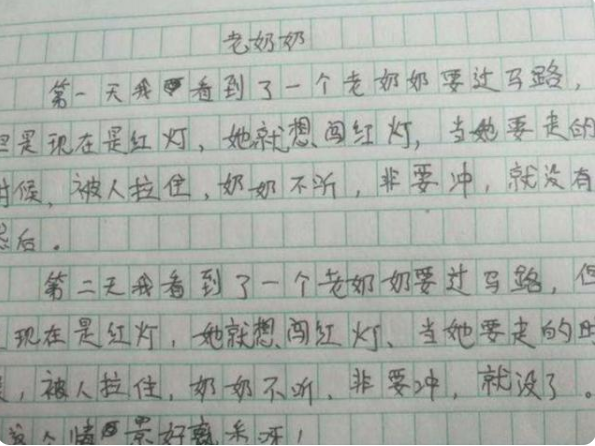 老奶奶
第一天我看到了一个老奶奶要过马路，
但是现在是红灯，她就想闯红灯，当她要走的
时候，被人拉住，奶奶不听，非要冲，就没有
然后。
第二天我看到了一个老奶奶要过马路，但
现在是红灯，她就想闯红灯、当她要走的时
候，被人拉住，奶奶不听，非要冲，就没了。
这个情景好熟悉呀！